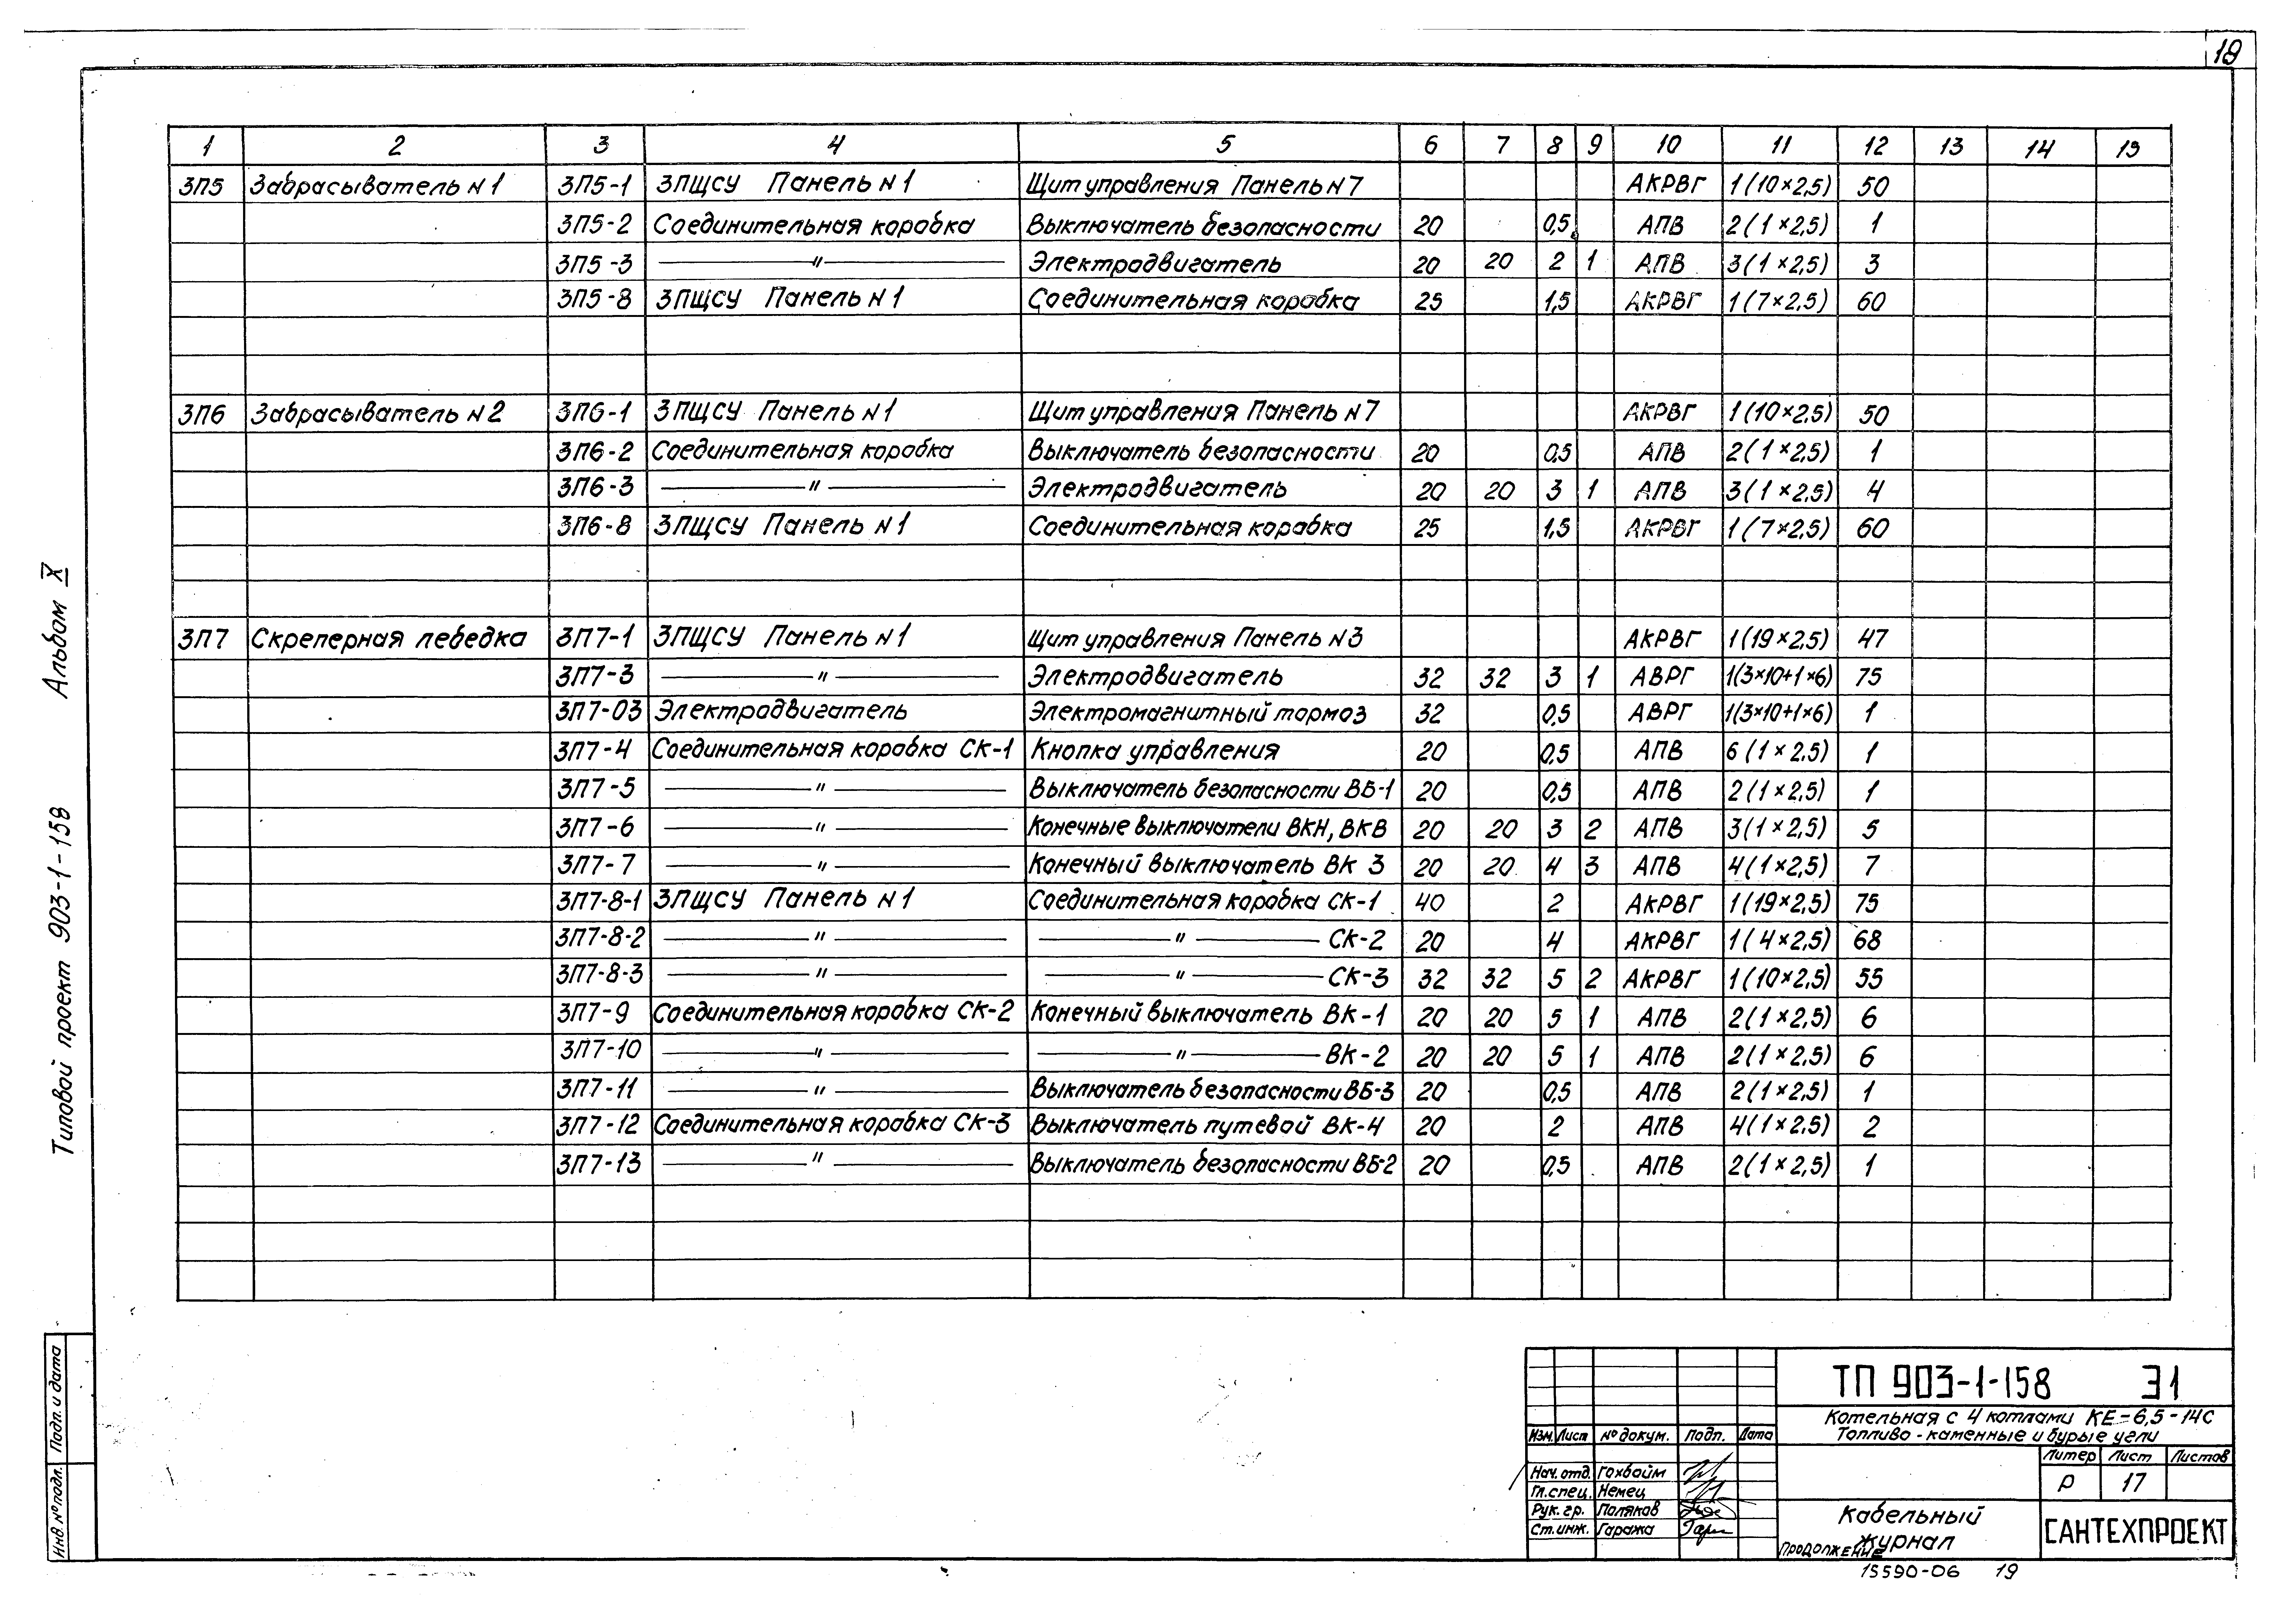 19
1 2 3 4 5 6 7 8 9 10 11 12 13 14 15
3П5 Забрасыватель N1 3П5-1 3ПЩСУ Панель N1 Щит управления Панель N7 АКРВГ 1(10×2,5) 50
3П5-2 Соединительная коробка Выключатель безопасности 20 0,5 АПВ 2(1×2,5) 1
3П5-3 —〃— Электродвигатель 20 20 2 1 АПВ 3(1×2,5) 3
3П5-8 3ПЩСУ Панель N1 Соединительная коробка 25 1,5 АКРВГ 1(7×2,5) 60
3П6 Забрасыватель N2 3П6-1 3ПЩСУ Панель N1 Щит управления Панель N7 АКРВГ 1(10×2,5) 50
3П6-2 Соединительная коробка Выключатель безопасности 20 0,5 АПВ 2(1×2,5) 1
3П6-3 —〃— Электродвигатель 20 20 3 1 АПВ 3(1×2,5) 4
3П6-8 3ПЩСУ Панель N1 Соединительная коробка 25 1,5 АКРВГ 1(7×2,5) 60
3П7 Скреперная лебедка 3П7-1 3ПЩСУ Панель N1 Щит управления Панель N3 АКРВГ 1(19×2,5) 47
3П7-3 —〃— Электродвигатель 32 32 3 1 АВРГ 1(3×10+1×6) 75
3П7-03 Электродвигатель Электромагнитный тормоз 32 0,5 АВРГ 1(3×10+1×6) 1
3П7-4 Соединительная коробка СК-1 Кнопка управления 20 0,5 АПВ 6(1×2,5) 1
3П7-5 —〃— Выключатель безопасности ВБ-1 20 0,5 АПВ 2(1×2,5) 1
3П7-6 —〃— Конечные выключатели ВКН, ВКВ 20 20 3 2 АПВ 3(1×2,5) 5
3П7-7 —〃— Конечный выключатель ВК 3 20 20 4 3 АПВ 4(1×2,5) 7
3П7-8-1 3ПЩСУ Панель N1 Соединительная коробка СК-1 40 2 АКРВГ 1(19×2,5) 75
3П7-8-2 —〃— —〃— СК-2 20 4 АКРВГ 1(4×2,5) 68
3П7-8-3 —〃— —〃— СК-3 32 32 5 2 АКРВГ 1(10×2,5) 55
3П7-9 Соединительная коробка СК-2 Конечный выключатель ВК-1 20 20 5 1 АПВ 2(1×2,5) 6
3П7-10 —〃— —〃— ВК-2 20 20 5 1 АПВ 2(1×2,5) 6
3П7-11 —〃— Выключатель безопасности ВБ-3 20 0,5 АПВ 2(1×2,5) 1
3П7-12 Соединительная коробка СК-3 Выключатель путевой ВК-4 20 2 АПВ 4(1×2,5) 2
3П7-13 —〃— Выключатель безопасности ВБ-2 20 0,5 АПВ 2(1×2,5) 1
Типовой проект 903-1-158 Альбом X
Инв. № подл. Подп. и дата
ТП 903-1-158 Э1
Котельная с 4 котлами КЕ-6,5-14С
Топливо - каменные и бурые угли
Изм. Лист № докум. Подп. Дата
Литер Лист Листов
Р 17
Нач. отд. Гохбойм
Гл. спец. Немец
Рук. гр. Поляков
Ст. инж. Гаража
Кабельный
журнал
продолжение
САНТЕХПРОЕКТ
15590-06 19